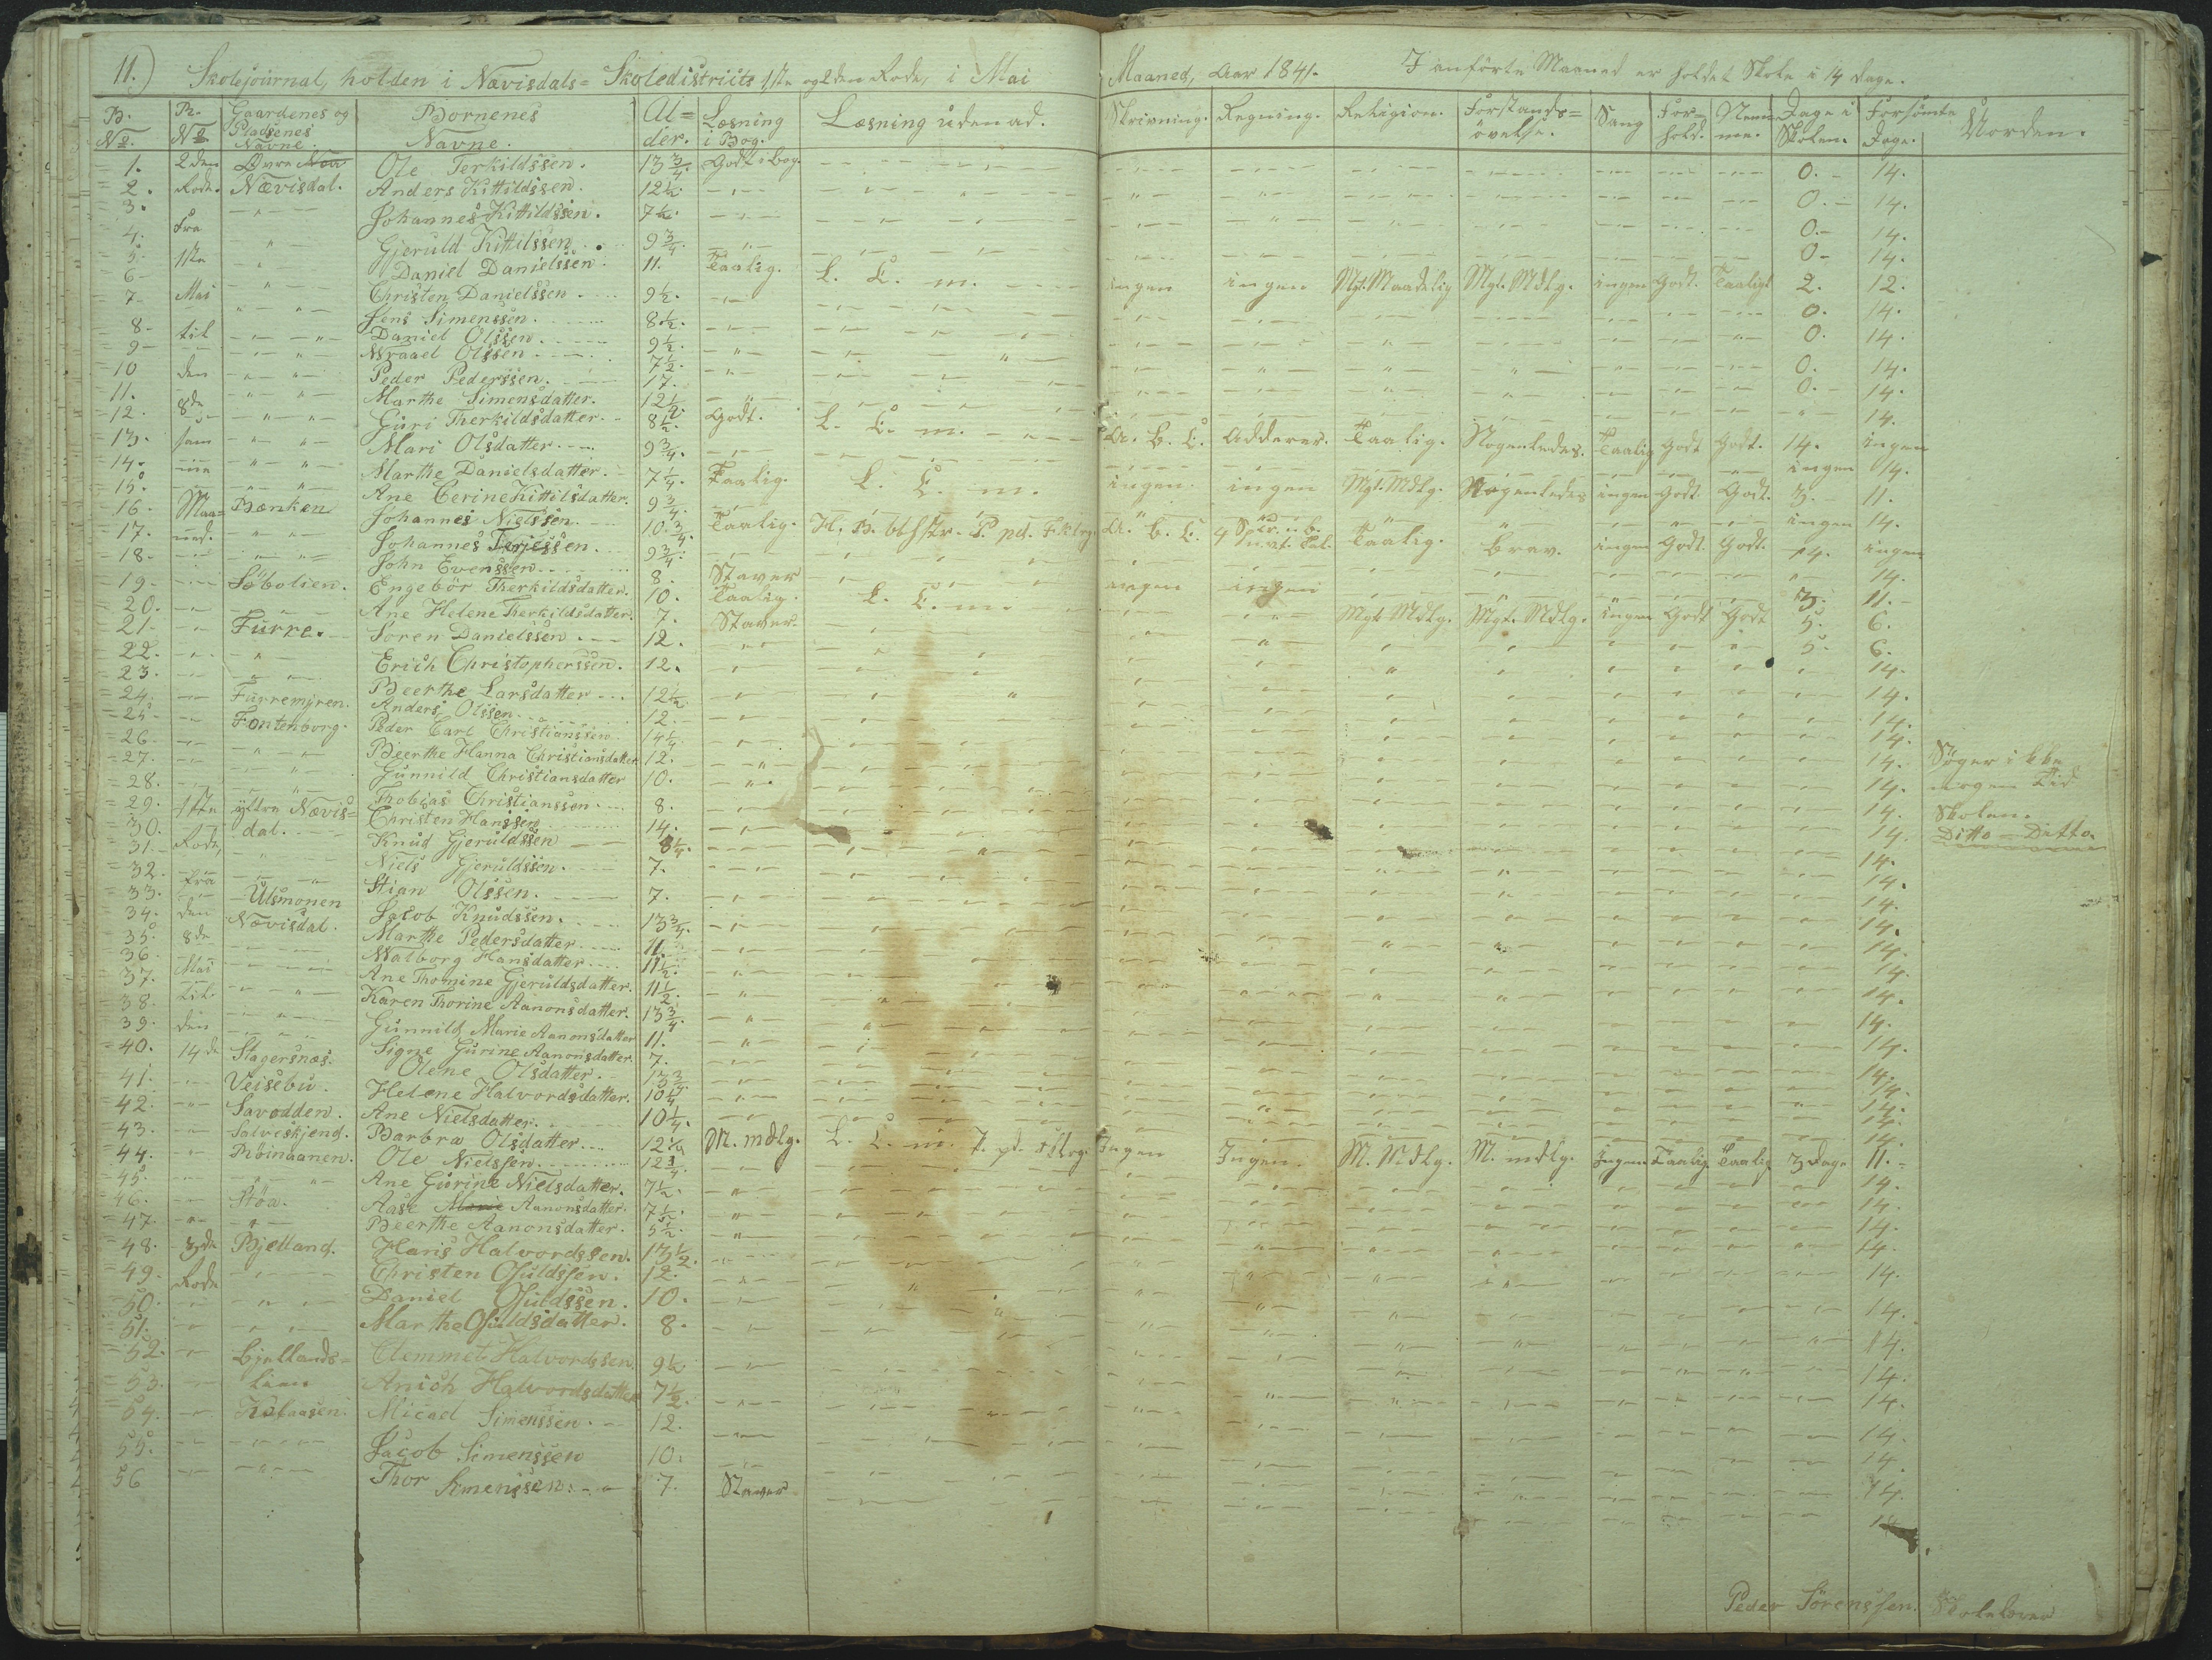 11.) Skolejournal, holden i Nævisdals= Skoledistricts 1ste og 2den Rode, i Mai Maaned, Aar 1841. I anförte Maaned er holdet Skole i 14 Dage.
B. No. R. No. Gaardenes og Pladsenes Navne. Bornenes Navne. Al=der. Læsning i Bog. Læsning udenad. Skrivning. Regning. Religion. Forstands=övelse. Sang For=hold. Nem=me. Dage i Skolen. Forsömte Dage. Uorden.
1. 2den Övre Ole Terkildssen. 13 3/4. Godt i bog. 0. 14.
2. Rode. Nævisdal. Anders Kittildssen. 12 1/2. 0. 14.
3. Johannes Kittildssen. 7 1/2. 0. 14.
4. Fra Gjeruld Kittilssen. 9 3/4. 0 14.
5. 1ste Daniel Danielssen. 11. Taalig. L. C. m. ingen ingen Mgt. Maadelig Mgt. Mdlg. ingen Godt. Taaligt 2. 12.
6 Christen Danielssen. 9 1/2. 0. 14.
7 Mai Jens Simenssen. 8 1/2. 0. 14.
8 til Daniel Olssen. 9 1/2. 0. 14.
9 Wraael Olssen 7 1/2. 0. 14.
10 den Peder Pederssen. 17. 14.
11. Marthe Simensdatter. 12 1/2.
12. 8de Guri Therkildsdatter. 8 1/2. Godt. L. C. m. A. b. C. Adderer. Taalig. Nogenledes. Taalig Godt Godt. 14. ingen
13. Mari Olsdatter. 9 3/4. ingen 14.
14. Marthe Danielsdatter. 7 1/4. Taalig. L. C. m. ingen. ingen Mgt. Mdlg. Nogenledes ingen Godt. Godt. 3. 11.
15. Ane Cerine Kittilsdatter. 9 3/4. ingen 14.
16. Maa= Bænken Johannes Nielssen. 10 3/4. Taalig. A. b. C. Taalig. brav. ingen Godt. Godt. 14. ingen
17. ned. Johannes Terjessen. 9 3/4. 14.
18. John Evenssen. 8. Staver
19. Söbolien. Engebör Therkildsdatter. 10. Taalig. L. C. m. ingen ingen 3. 11.
20. Ane Helene Therkildsdatter. 7. Staver Mgt Mdlg. Mgt. Mdlg. ingen Godt Godt 5. 6.
21. Furre. Soren Danielssen. 12. 5. 6.
22. Erich Christopherssen. 12. 14.
23. Beerthe Larsdatter 12 1/2. 14.
24. Furremyren. Anders Olssen. 12. 14.
25. Fontenborg. Peder Carl Christianssen. 14 1/4. 14.
26. Beerthe Hanna Christiansdatter 12. 14. Söger ikke
27. Gunnild Christiansdatter 10. 14. nogen Tid
28. Thobias Christianssen. 8. 14. Skolen.
29. 1ste yttre Nævis= Christen Hanssen 14. 14. Ditto Ditto.
30. Rode, dal. Knud Gjeruldssen 8 1/4. 14.
31. Niels Gjeruldssen. 7. 14.
32. fra Stian Olssen. 7. 14.
33. Ulsmonen Jacob Knudssen. 13 3/4. 14.
34. den Nævisdal. Marthe Pedersdatter 11. 14.
35. 8de Walborg Hansdatter 11 1/2. 14.
36. Mai Ane Thomine Gjeruldsdatter. 11 1/2. 14.
37. til Karen Thorine Aanonsdatter. 13 3/4. 14.
38. Gunnild Marie Aanonsdatter 11. 14.
39. den Signe Gurine Aanonsdatter. 7. 14.
40. 14de Stagersnæs. Olene Olsdatter. 13 3/4. 14.
41. Veisebu. Helene Halvordsdatter. 10 1/4. 14.
42. Savodden. Ane Nielsdatter. 10 1/4. 14.
43. Salveskjend. Barbra Olsdatter 12 1/2 M. mdlg. L. C. m. Ingen Ingen. M. Mdlg. M. mdlg. Ingen Taalig Taalig 3 Dage 11.
44. Röinaanen. Ole Nielssen. 12 3/4. 14.
45. Ane Gurine Nielsdatter. 7 1/2. 14.
46. Stöa. Aase Marie Aanonsdatter. 7 1/2. 14.
47. Beerthe Aanonsdatter. 5 1/2. 14.
48. 3de Bjelland. Hans Halvordssen. 13 1/2. 14.
49. Rode Christen Osuldssen. 12. 14.
50. Daniel Osuldssen. 10. 14.
51. Marthe Osuldsdatter. 8. 14.
52. Bjellands= Clemmet Halvordssen. 9 1/2 14.
53. lien Anich Halvordsdatter 7 1/2. 14.
54. Micael Simenssen. 12. 14.
55. Jacob Simenssen 10. 14.
56 Thor Simenssen. 7. Staver
Peder Sörenssen. Skolelærer